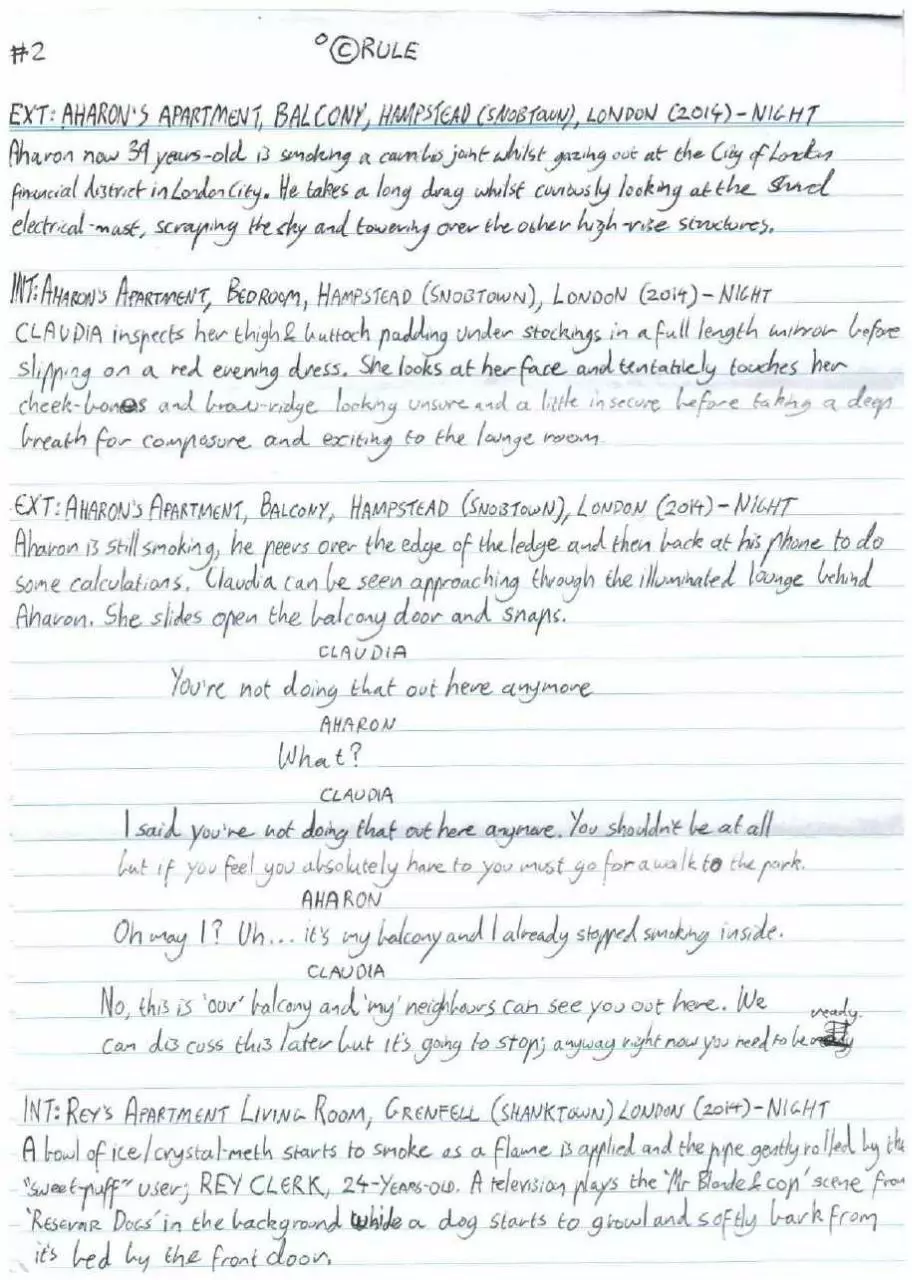 #2
°©RULE
EXT: AHARON'S APARTMENT, BALCONY, HAMPSTEAD (SNOBTOWN), LONDON (2014) - NIGHT
Aharon now 39 years-old is smoking a joint whilst gazing out at the City of London
financial district in London City. He takes a long drag whilst curiously looking at the Shard
electrical-mast, scraping the sky and towering over the other high-rise structures.
INT: AHARON'S APARTMENT, BEDROOM, HAMPSTEAD (SNOBTOWN), LONDON (2014) - NIGHT
CLAUDIA inspects her thigh & buttock padding under stockings in a full length mirror before
slipping on a red evening dress. She looks at her face and tentatively touches her
cheek-bones and brow-ridge looking unsure and a little insecure before taking a deep
breath for composure and exciting to the lounge room
EXT: AHARON'S APARTMENT, BALCONY, HAMPSTEAD (SNOBTOWN), LONDON (2014) - NIGHT
Aharon is still smoking, he peers over the edge of the ledge and then back at his phone to do
some calculations. Claudia can be seen approaching through the illuminated lounge behind
Aharon. She slides open the balcony door and snaps.
CLAUDIA
You're not doing that out here anymore
AHARON
What?
CLAUDIA
I said you're not doing that out here anymore. You shouldn't be at all
but if you feel you absolutely have to you must go for a walk to the park.
AHARON
Oh may I? Uh... it's my balcony and I already stopped smoking inside.
CLAUDIA
No, this is 'our' balcony and 'my' neighbours can see you out here. We
can discuss this later but it's going to stop; anyway right now you need to be ready.
INT: REY'S APARTMENT LIVING ROOM, GRENFELL (SHANKTOWN) LONDON (2014) - NIGHT
A bowl of ice/crystal-meth starts to smoke as a flame is applied and the pipe gently rolled by the
"sweet-puff" user; REY CLERK, 24-YEARS-OLD. A television plays the 'Mr Blonde & cop' scene from
'RESEVAR DOGS' in the background while a dog starts to growl and softly bark from
it's bed by the front door.